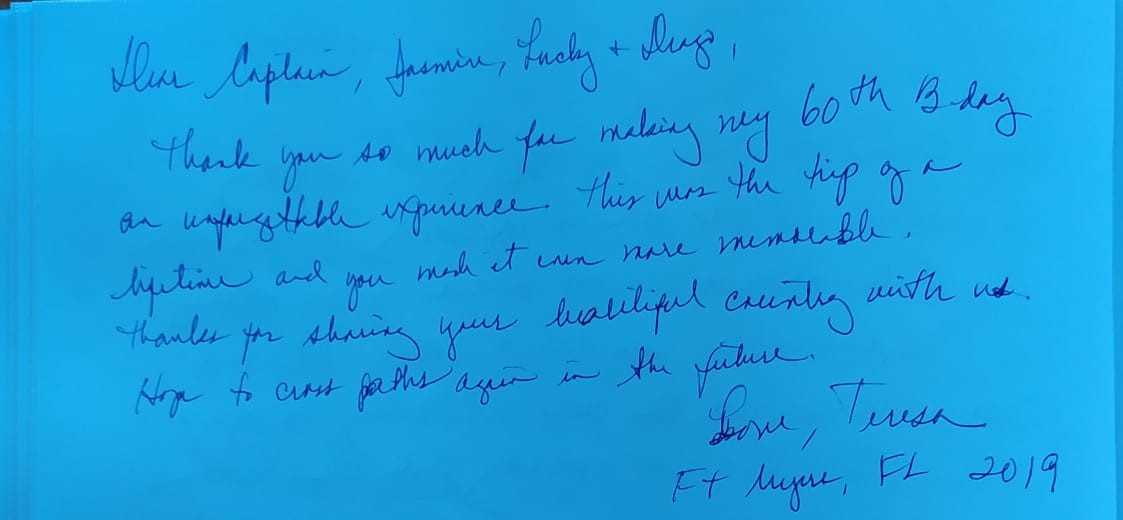 Dear Captain, Jasmin, Lucky + Drago,
Thank you so much for making my 60th B-day
an unforgettable experience. This was the trip of a
lifetime and you made it even more memorable.
Thanks for sharing your beautiful country with us.
Hope to cross paths again in the future.
Love, Teresa
Ft Myers, FL 2019